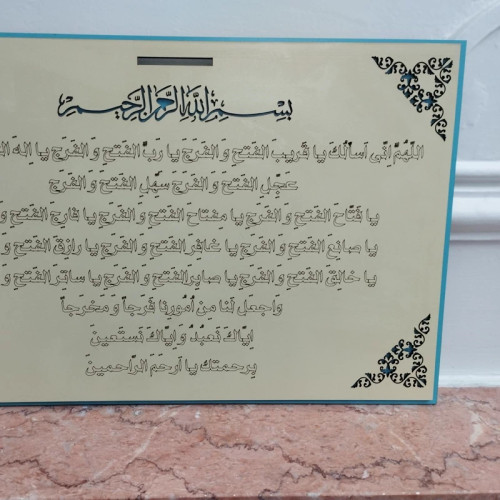 بسم الله الرحمن الرحيم
اللهُمَّ اِنّی اَسألُکَ یا قَریبَ الفَتحِ وَ الفَرَجِ یا رَبَّ الفَتحِ وَ الفَرَجِ یا اِلهَ
عَجِّلِ الفَتحَ وَ الفَرَجَ سَهِّلِ الفَتحَ وَ الفَرَجَ
یا فَتّاحَ الفَتحِ وَ الفَرَجِ یا مِفتاحَ الفَتحِ وَ الفَرَجِ یا فارِجَ الفَتحِ وَ
یا صانِعَ الفَتحِ وَ الفَرَجِ یا غافِرَ الفَتحِ وَ الفَرَجِ یا رازِقَ الفَتحِ وَ
یا خالِقَ الفَتحِ وَ الفَرَجِ یا صابِرَ الفَتحِ وَ الفَرَجِ یا ساتِرَ الفَتحِ وَ
وَاجعَل لَنا مِن اُمُورِنا فَرَجاً وَ مَخرَجاً
اِیّاکَ نَعبُدُ وَ اِیّاکَ نَستَعینَ
بِرحمتك یا اَرحَمَ الرّاحمینَ